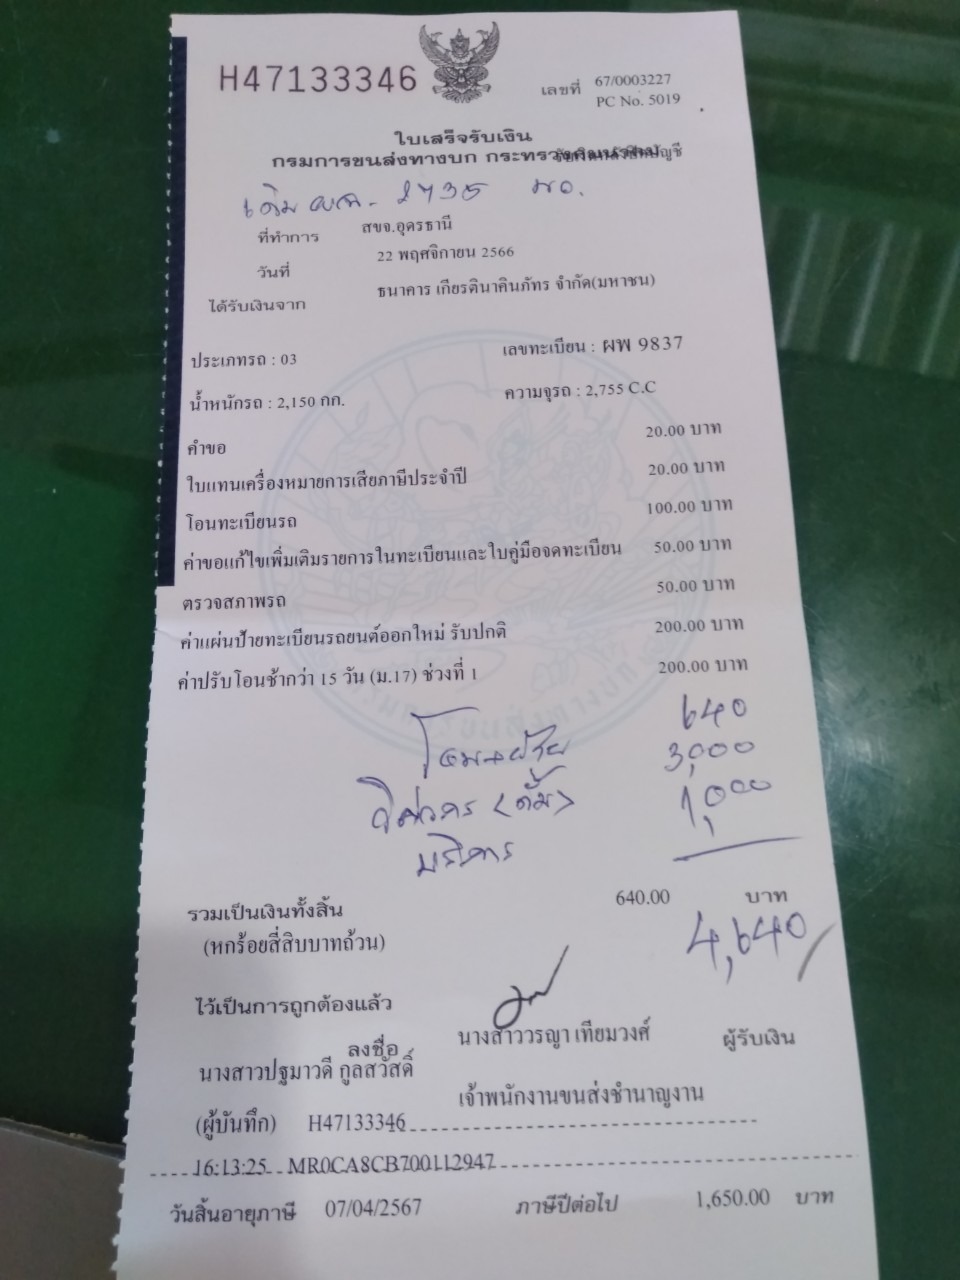 H47133346
เลขที่ 67/0003227
PC No. 5019
ใบเสร็จรับเงิน
กรมการขนส่งทางบก กระทรวงคมนาคม
เดิม 2735
ที่ทำการ สขจ.อุดรธานี
วันที่ 22 พฤศจิกายน 2566
ได้รับเงินจาก ธนาคาร เกียรตินาคินภัทร จำกัด(มหาชน)
ประเภทรถ : 03 เลขทะเบียน : ผพ 9837
น้ำหนักรถ : 2,150 กก. ความจุรถ : 2,755 C.C
คำขอ 20.00 บาท
ใบแทนเครื่องหมายการเสียภาษีประจำปี 20.00 บาท
โอนทะเบียนรถ 100.00 บาท
ค่าขอแก้ไขเพิ่มเติมรายการในทะเบียนและใบคู่มือจดทะเบียน 50.00 บาท
ตรวจสภาพรถ 50.00 บาท
ค่าแผ่นป้ายทะเบียนรถยนต์ออกใหม่ รับปกติ 200.00 บาท
ค่าปรับโอนช้ากว่า 15 วัน (ม.17) ช่วงที่ 1 200.00 บาท
640
โอน+ย้าย 3,000
วิศวกร (ดั้ม) 1,000
บริการ
รวมเป็นเงินทั้งสิ้น 640.00 บาท
(หกร้อยสี่สิบบาทถ้วน) 4,640
ไว้เป็นการถูกต้องแล้ว
ลงชื่อ นางสาววรญา เทียมวงศ์ ผู้รับเงิน
นางสาวปฐมาวดี กูลสวัสดิ์
เจ้าพนักงานขนส่งชำนาญงาน
(ผู้บันทึก) H47133346
16:13:25 MR0CA8CB700112947
วันสิ้นอายุภาษี 07/04/2567 ภาษีปีต่อไป 1,650.00 บาท